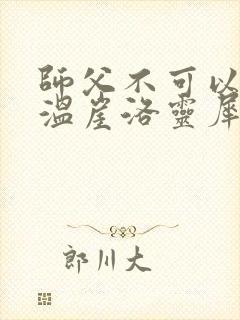 師父不可以
溫崖洛靈犀
郎川大